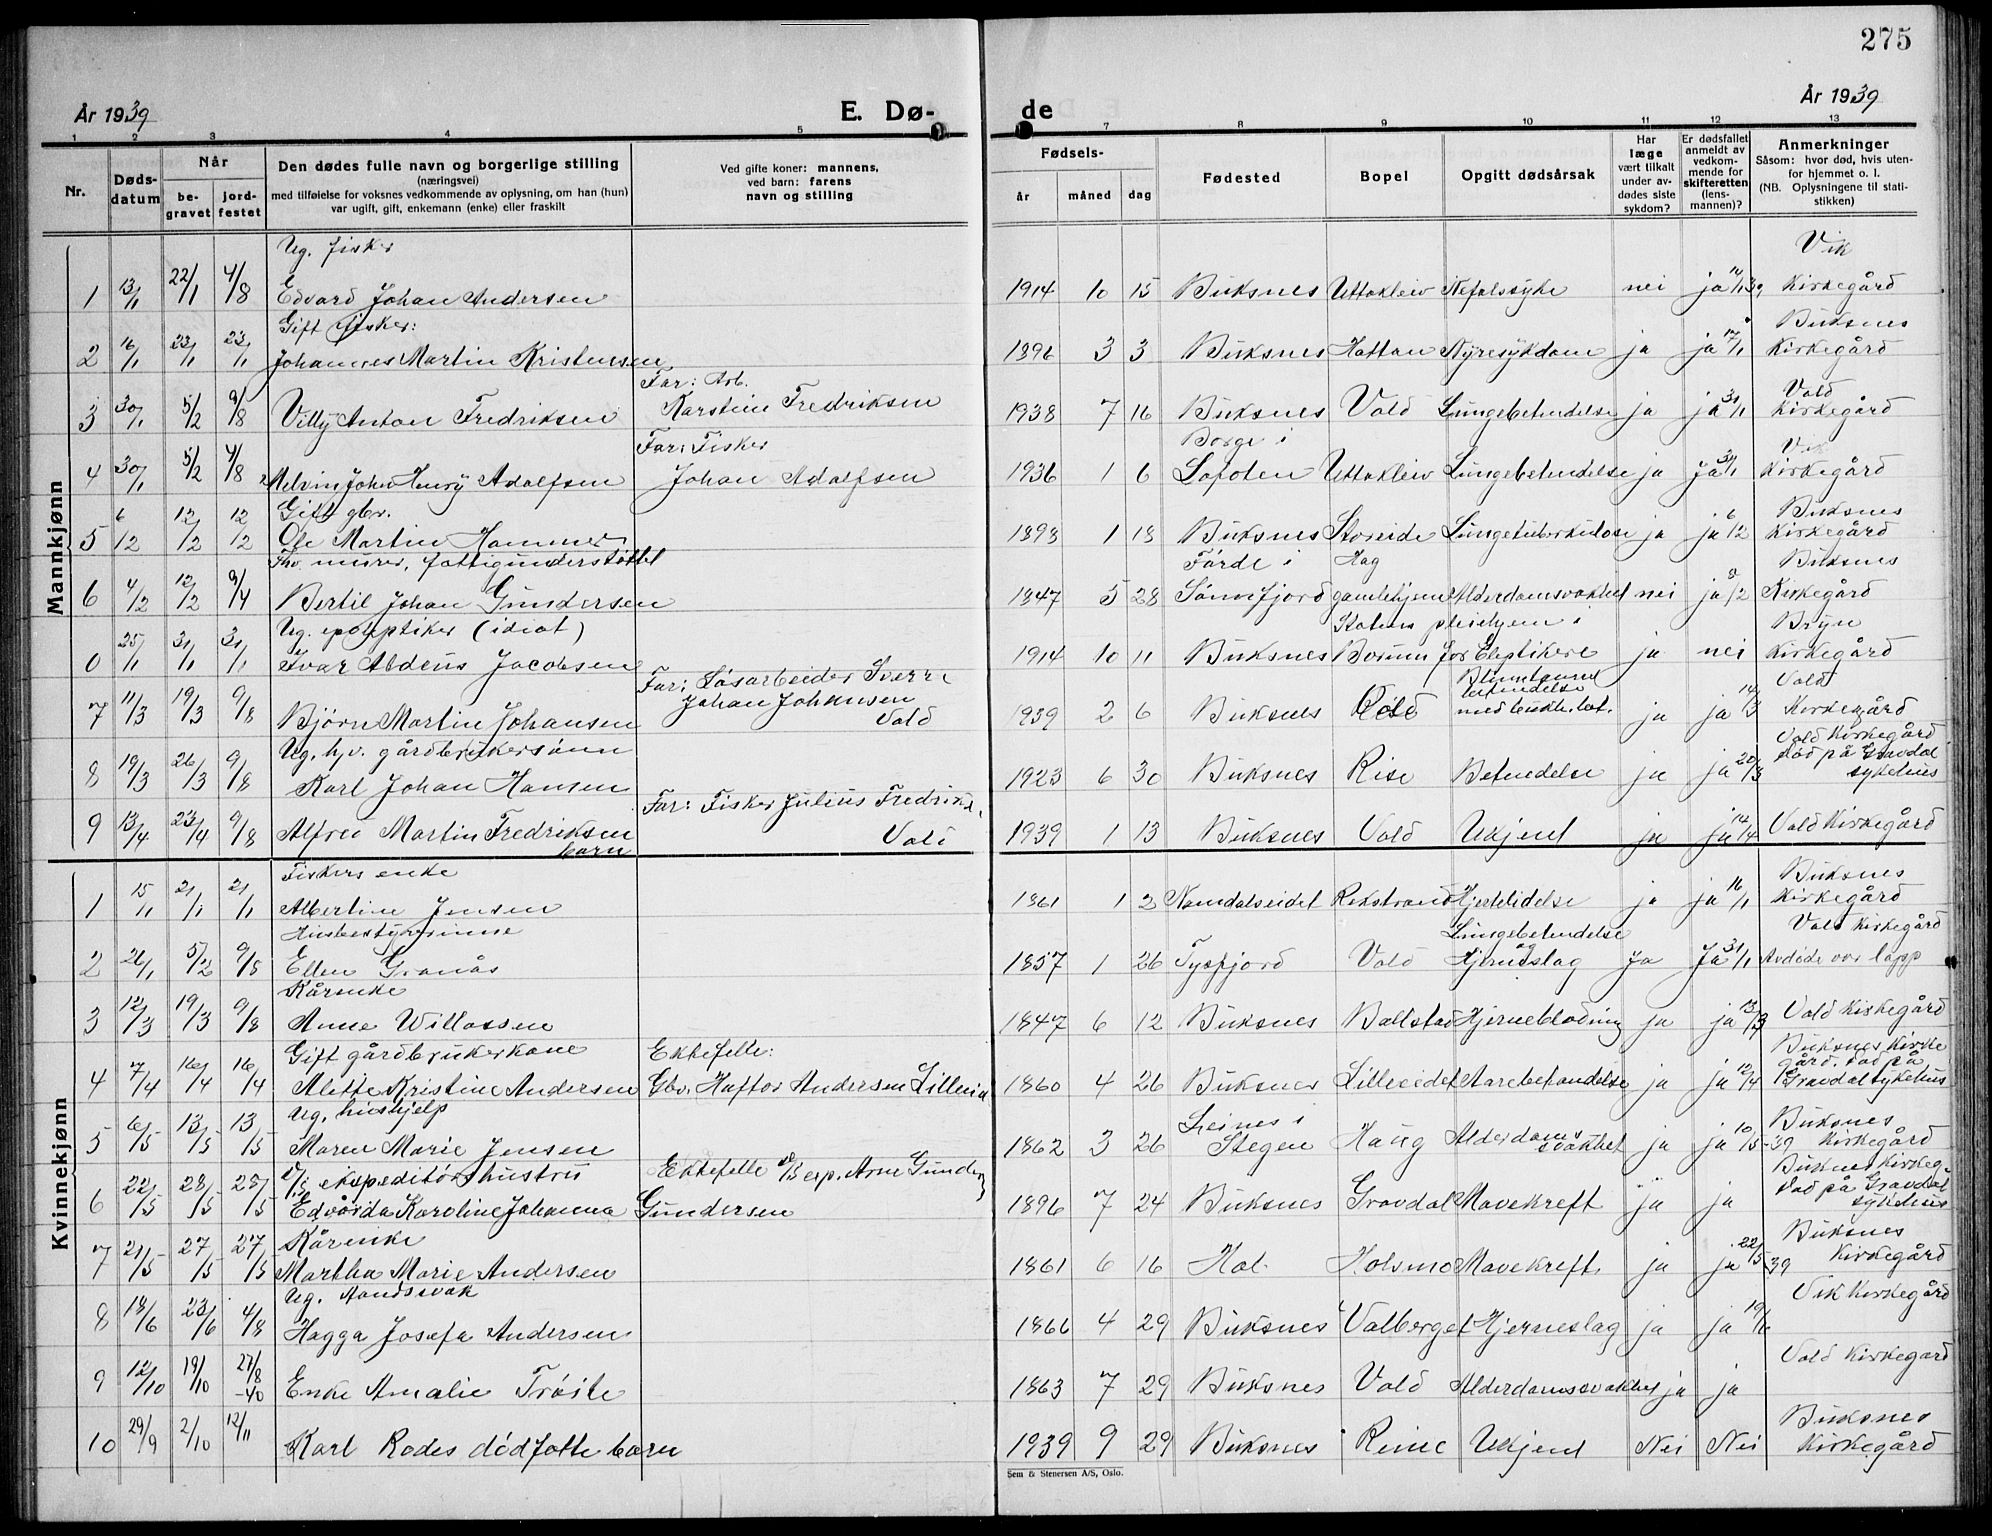 275
År 1939
E. Dø-
de
År 1939
1 2 3 4 5 7 8 9 10 11 12 13
Nr.
Døds-
datum
Når
be-
gravet
jord-
festet
Den dødes fulle navn og borgerlige stilling
(næringsvei)
med tilføielse for voksnes vedkommende av oplysning, om han (hun)
var ugift, gift, enkemann (enke) eller fraskilt
Ved gifte koner: mannens,
ved barn: farens
navn og stilling
Fødsels-
år måned dag
Fødested
Bopel
Opgitt dødsårsak
Har
læge
vært tilkalt
under av-
dødes siste
sykdom?
Er dødsfallet
anmeldt av
vedkom-
mende for
skifteretten
(lens-
mannen)?
Anmerkninger
Såsom: hvor død, hvis uten-
for hjemmet o. l.
(NB. Oplysningene til stati-
stikken)
Mannkjønn
Ug. fisker Vik
1 13/1 22/1 4/8 Edvard Johan Andersen 1914 10 15 Buksnes Uttakleiv nei ja 14/1 39 Kirkegård
Gift fisker: Buksnes
2 16/1 23/1 23/1 Johannes Martin Kristensen 1896 3 3 Buksnes Hattan Nyresykdom ja ja 17/1 Kirkegård
Far: Arb. Vold
3 30/1 5/2 9/8 Villy Anton Fredriksen Karstein Fredriksen 1938 7 16 Buksnes Vold Lungebetendelse ja ja 31/1 Kirkegård
Far: Fisker Borge i Vik
4 30/1 5/2 4/8 Melvin Johan Henry Adolfsen Johan Adolfsen 1936 1 6 Lofoten Uttakleiv Lungebetendelse ja ja 31/1 Kirkegård
Gift gbr. Buksnes
5 6/2 12/2 12/2 Ole Martin Hammer 1893 1 18 Buksnes Storeide Lungetuberkulose ja ja 6/2 Kirkegård
Fhv. murer, fattigunderstøttet Førde i Hag Buksnes
6 4/2 12/2 9/4 Bertil Johan Gundersen 1847 5 28 Sønnfjord gamlehjem Alderdomsvakhet nei ja 8/2 Kirkegård
Ug. epileptiker (idiot) Statens pleiehjem i Bryn
0 25/1 31/1 31/1 Ivar Aldeus Jacobsen 1914 10 11 Buksnes Borum for Eleptikere ja nei Kirkegård
Far: Løsarbeider Sverre Vold
7 11/3 19/3 9/8 Bjørn Martin Johansen Johan Johansen 1939 2 6 Buksnes ja ja 14/3 Kirkegård
Vold betendelse
Ug. hjv. gårdbrukersønn Vold Kirkegård
8 19/3 26/3 9/8 Karl Johan Hansen 1923 6 30 Buksnes Rise Betendelse ja ja 20/3 død på Gravdal
sykehus
Far: Fisker Julius Fredriks.
9 13/4 23/4 9/8 Alfred Martin Fredriksen Vold 1939 1 13 Buksnes Vold Ukjent ja ja 14/4 Vold Kirkegård
barn
Kvinnekjønn
Fiskers enke Buksnes
1 15/1 21/1 21/1 Albertine Jensen 1861 1 2 Namdalseidet Rekstrand Hjertelidelse ja ja 16/1 Kirkegård
Husbestyrerinne Lungebetendelse og Vold Kirkegård
2 26/1 5/2 9/8 Ellen Granås 1857 1 26 Tysfjord Vold Hjerneslag Ja Ja 31/1 Avdøde var lapp
Kårenke
3 12/3 19/3 9/8 Anne Willassen 1847 6 12 Buksnes Ballstad Hjerneblødning ja ja 13/3 Vold Kirkegård
Gift gårdbrukerkone Ektefelle: Buksnes Kirke
gård. Død på
4 7/4 16/4 16/4 Alette Kristine Andersen Gbr. Haftor Andersen 1860 4 26 Buksnes Lilleeidet Aarebetendelse ja ja 12/4 Gravdal sykehus
Ug. hushjelp Leines i Buksnes
5 6/5 13/5 13/5 Maren Marie Jensen 1862 3 26 Stegen Haug Alderdomssvakhet ja ja 10/5-39 Kirkegård
ekspeditørs hustru Ektefelle exp. Arne Buksnes Kirkeg.
Død på Gravdal
6 22/5 28/5 28/5 Edvarda Karoline Johanna Gundersen 1896 7 24 Buksnes Gravdal Mavekreft ja ja sykehus
Kårenke Buksnes
7 21/5 27/5 27/5 Martha Marie Andersen 1861 6 16 Hol. Holsmo Mavekreft ja ja 22/5 39 Kirkegård
Ug. Aandssvak Vik Kirkegård
8 18/6 23/6 4/8 Hagga Josefa Andersen 1866 4 29 Buksnes Valberget Hjerneslag ja ja 19/6
Vold Kirkegård
9 12/10 19/10 27/8-40 Enke Amalie Trøite 1863 7 29 Buksnes Vold Alderdomssvakhet ja ja
Buksnes
10 29/9 2/10 12/11 Karl Rodes dødfødte barn 1939 9 29 Buksnes Reine Ukjent Nei Nei Kirkegård
Sem & Stenersen A/S, Oslo.